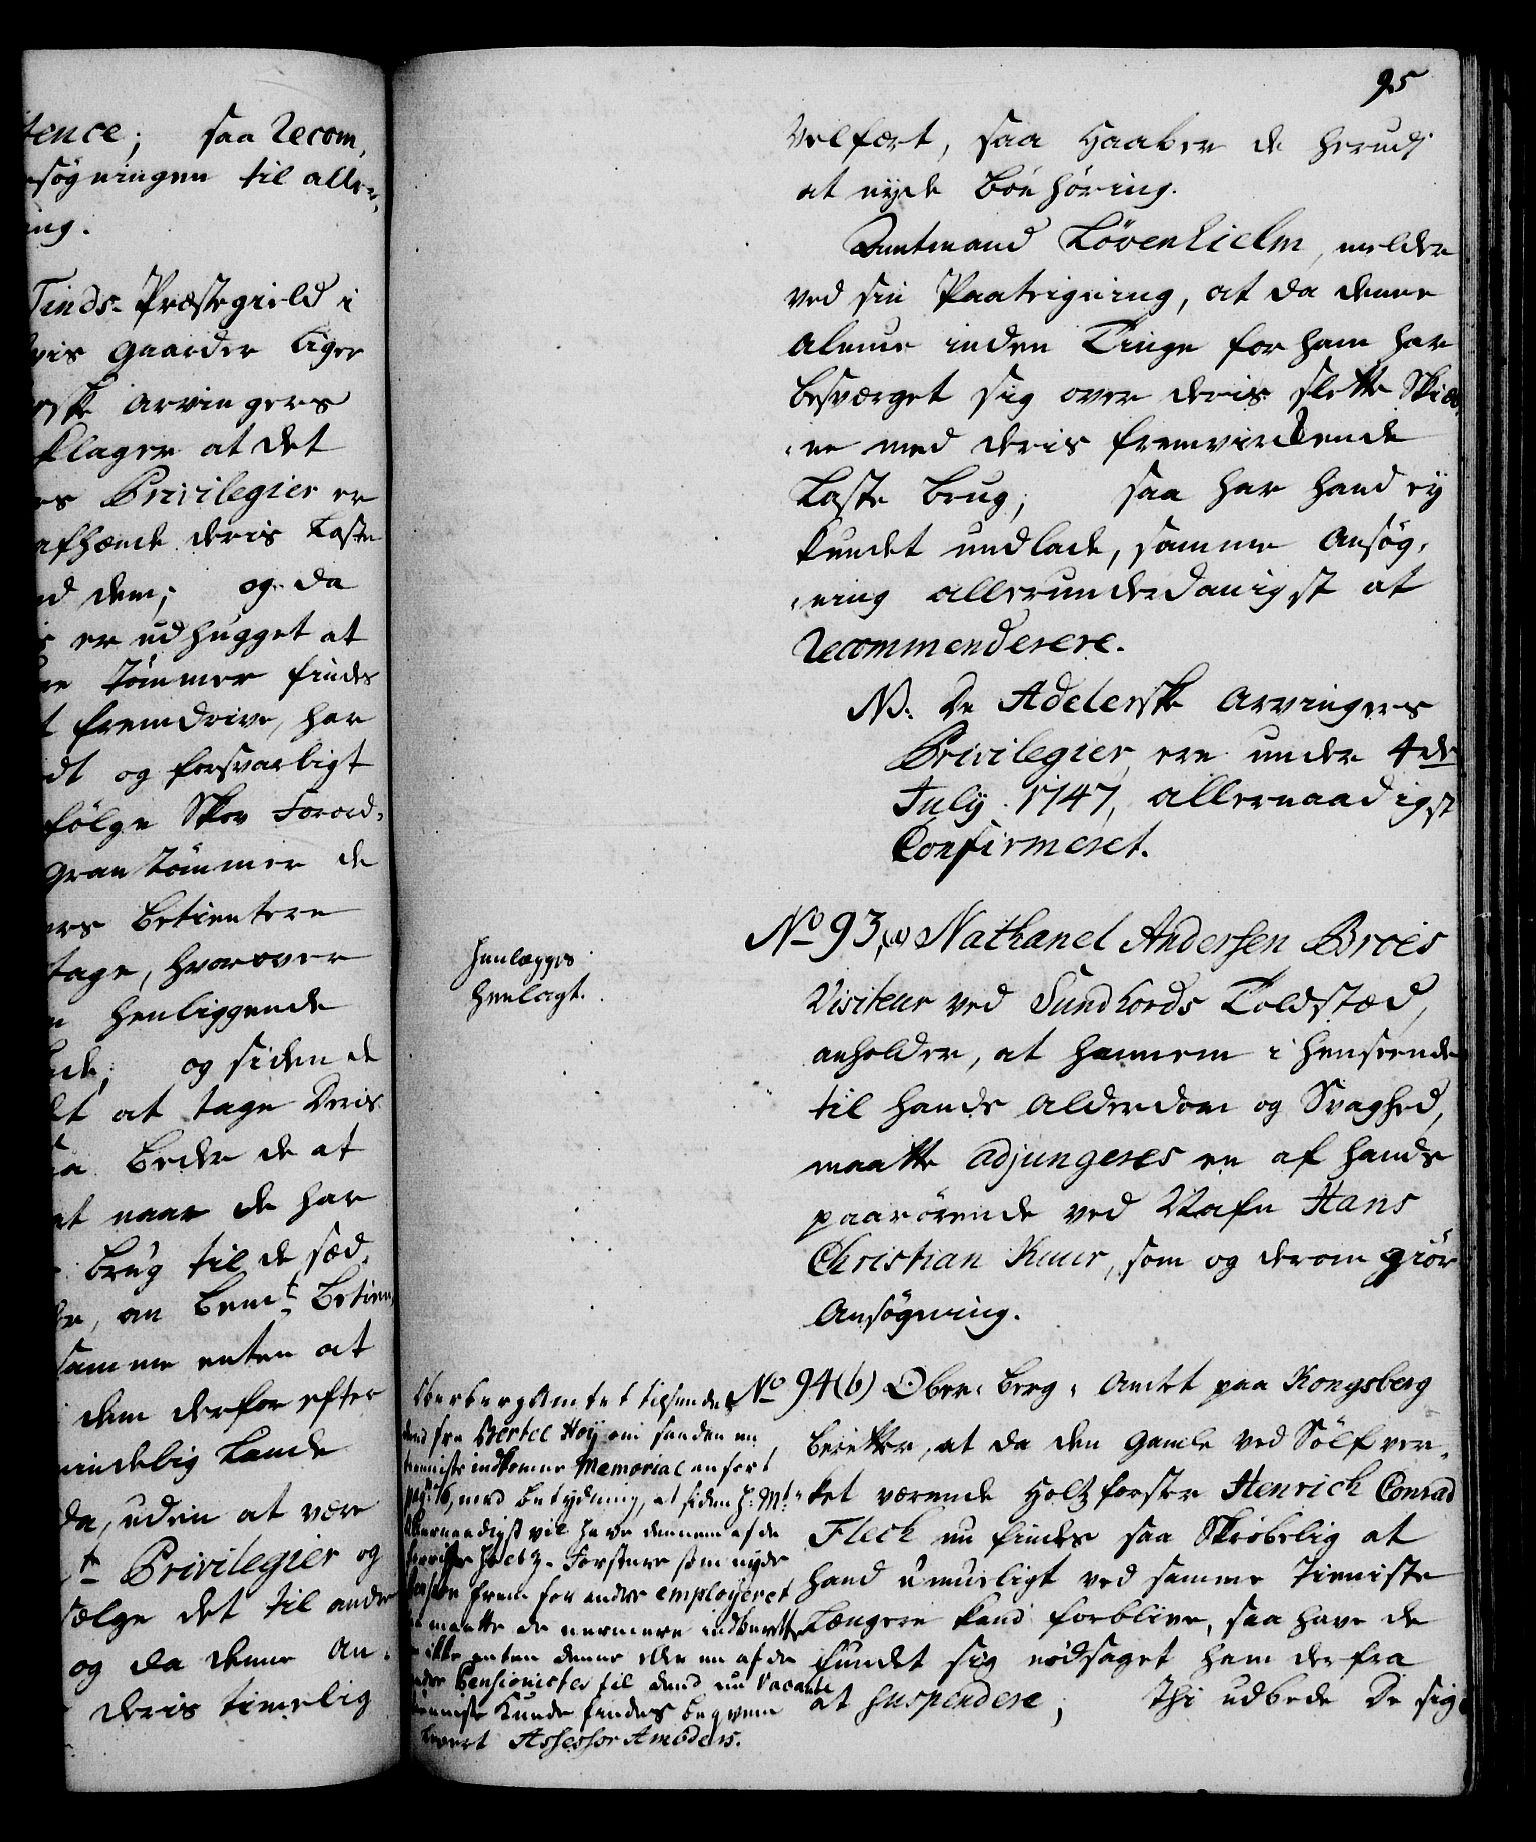 tence; saa Recom,
søgningen til aller,
ing.
Tinds- Præstegield i
vis Gaarder liger
ske Arvingers
Klager at det
es Privilegier er
afhænde deris Laste
nd dem; og da
er udhugget at
ne Tømmer findes
t fremdrive, har
dt og forsvarligt
følge Skov Forord,
Gran Tømmer de
ers Betientere
tage, hvorover
n henliggende
nde; og siden de
lt at tage deris
aa beder de at
at naar de har
brug til de sæd,
de, om bemt Betien,
samme enten at
dem derfor efter
mindelig Lands
da, uden at være
te Privilegier og
sælge det til andre
og da denne An,
deris timelig
95
Velfært, saa haaber de herudj
at nyde bønhøring.
Amtmand Løvenhielm, melder
ved sin Paategning, at da denne
Almue inden Tinge for ham har
besværget sig over deris slette Skiæb,
ne med deris fremvirkende
Laste brug; saa har hand ey
kundet undlade, samme Ansøg,
ning allerunderdanigst at
Recommenderere.
NB. De Adelerske Arvingers
Privilegier, ere under 4de
July 1747, allernaadigst
Confirmeret.
henlægges
henlagt.
No 93,(a) Nathanel Andersen Broes
Visiteur ved Sundhords Toldstæd,
anholder, at hannem i henseende
til hands Alderdom og Svaghed,
maatte adjungeres en af hands
paarørende ved Nafn Hans
Christian Ruur, som og derom giør
Ansøgning.
Oberbergamtet tilsendes
dend fra Bertel Høy om sanden en
tieniste indkomne Memorial anført
pag: 6, med betydning, at siden H: Mt:
Allernaadigst vil have dennem af de
Holtz-Forstere som nyde
Pension frem for andre employeret
maatte de nermere indberette
ikke enten denne eller en af de
andre Pensionister til dend nu Vacante
tieniste kunde findes beqvem
Assessor Ambders.
No 94(b) Ober, berg, Amtet paa Kongsberg
beretter, at da den gamle ved Sølfver,
ket værende Holtzforster Henrich Conrad
Fleck nu findes saa Skrøbelig at
hand umueligt ved samme Tieniste
længere kand forblive, saa have de
fundet sig nødsaget ham derfra
at suspendere; thi udbede De sig